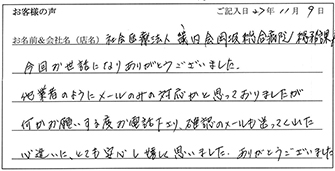 お客様の声
ご記入日 27年 11月 9日
お名前&会社名（店名） 社会医療法人 篠田会岡波総合病院/総務課
今回お世話になりありがとうございました。
他業者のようにメールのみの対応かと思っておりましたが
何かお願いする度お電話下さり、確認のメールも送ってくれた
心遣いに、とても安心し嬉しく思いました。ありがとうございました